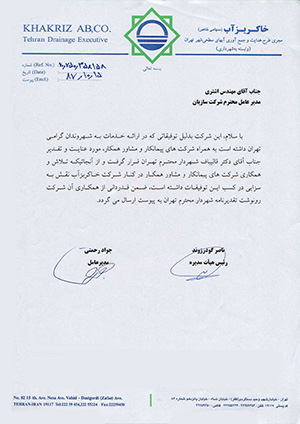 KHAKRIZ AB,CO.
Tehran Drainage Executive
خاکریز آب
(سهامی خاص)
مجری طرح هدایت و جمع آوری آبهای سطحی شهر تهران
(وابسته به شهرداری)
شماره (Ref. No.)
تاریخ (Date)
پیوست (Encl)
۸۷/۱۰/۱۵
بسمه تعالی
جناب آقای مهندس اشتری
مدیر عامل محترم شرکت سازیان
با سلام، این شرکت بدلیل توفیقاتی که در ارائه خدمات به شهروندان گرامی
تهران داشته است به همراه شرکت های پیمانکار و مشاور همکار، مورد عنایت و تقدیر
جناب آقای دکتر قالیباف شهردار محترم تهران قرار گرفت و از آنجائیکه تلاش و
همکاری شرکت های پیمانکار و مشاور همکار در کنار شرکت خاکریزآب نقش به
سزایی در کسب این توفیقات داشته است، ضمن قدردانی از همکاری آن شرکت
رونوشت تقدیرنامه شهردار محترم تهران به پیوست ارسال می گردد.
ناصر گودرزوند
رئیس هیأت مدیره
جواد رحمتی
مدیرعامل
No. 82 13 th. Ave. Nesa Ave. Vahid - Dastgerdi (Zafar) Ave.
TEHRAN-IRAN